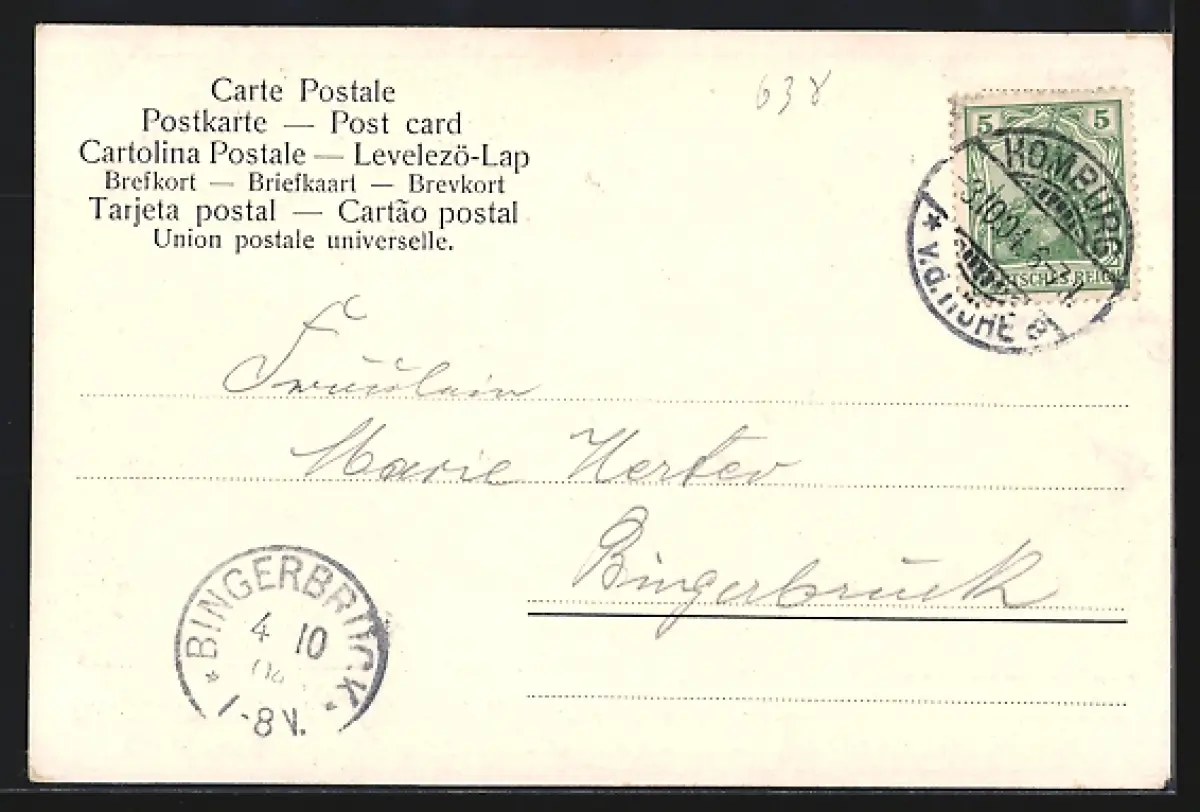 Carte Postale
Postkarte — Post card
Cartolina Postale — Levelezö-Lap
Brefkort — Briefkaart — Brevkort
Tarjeta postal — Cartão postal
Union postale universelle.
638
5 5
DEUTSCHES REICH
HOMBURG
3/10 04 6-7 N.
* v.d. HÖHE a
Fräulein
Marie Herter
Bingerbrück
* BINGERBRÜCK *
4 10
04
7-8 V.